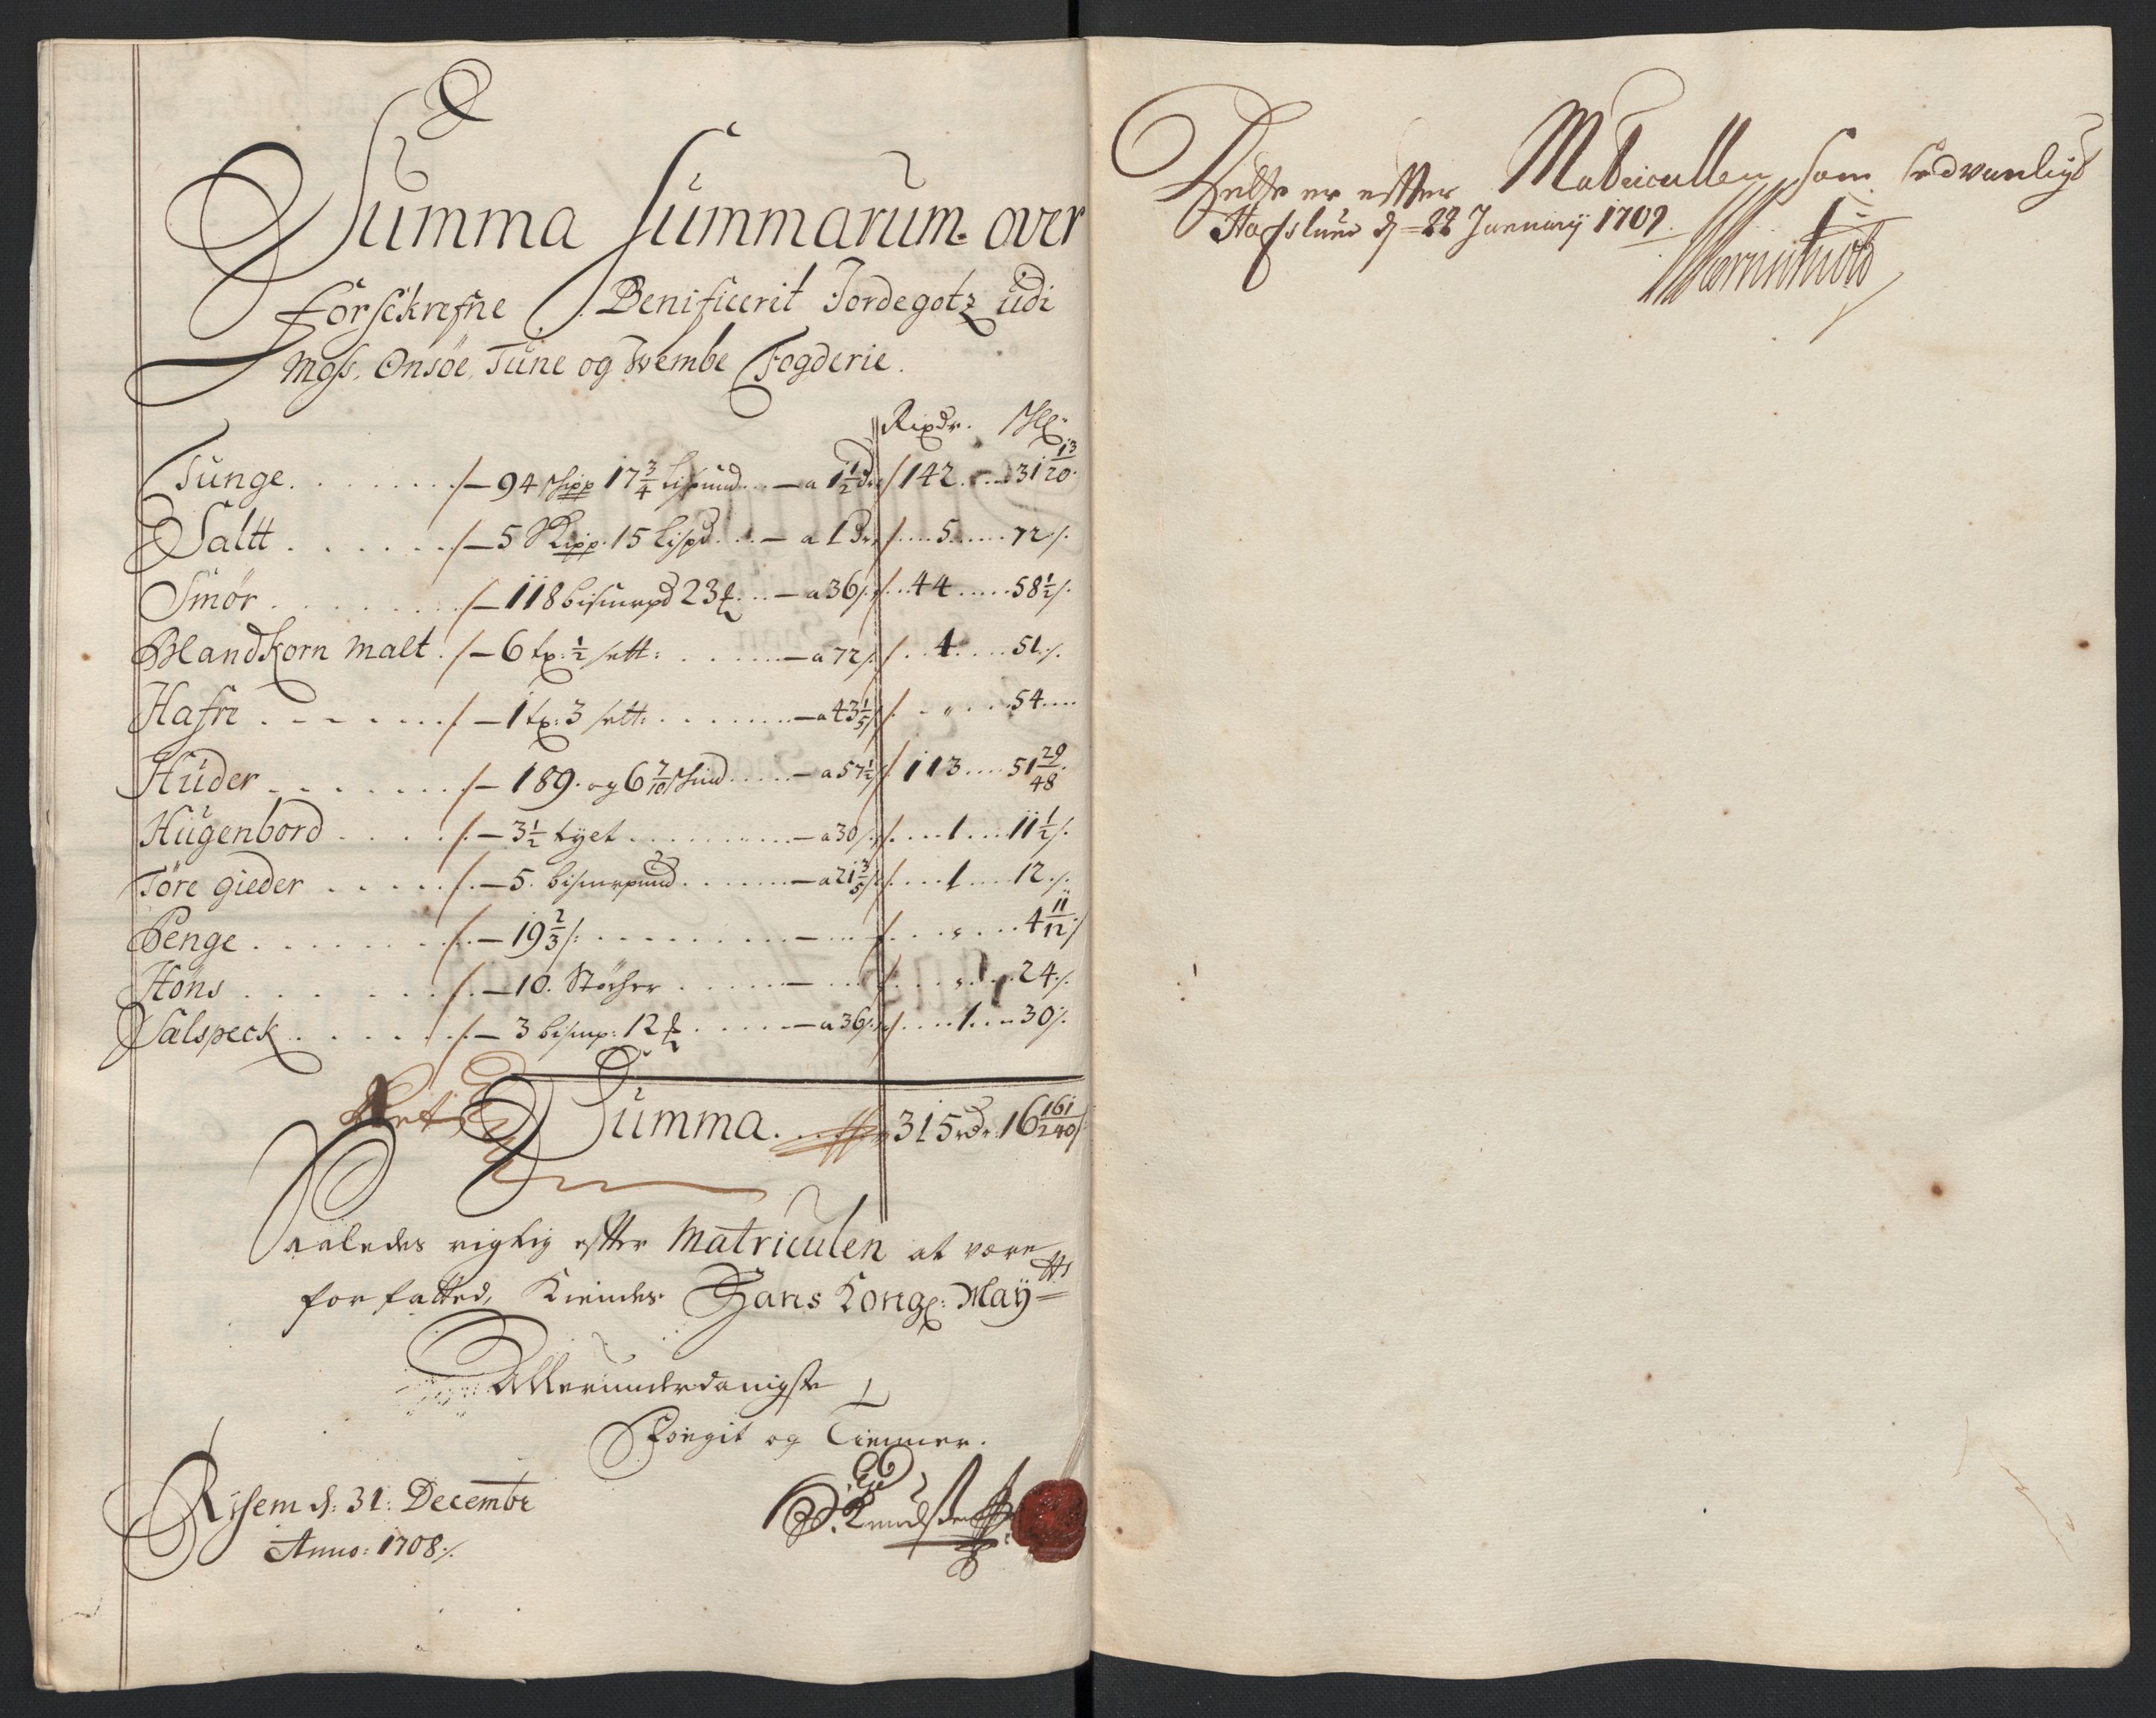 Summa Summarum over
forschrefne Benificerit Jordegotz udi
Mofs, Onsöe, Tune og Wembe Fogderie.
Rixdr. ßl:
Tunge. . . . /– 94 skipp 17 3/4 lispund – a 1 1/2 dr / 142 . . 31 13/20.
Saltt . . . . /– 5 Skipp. 15 lispd – a 1 dr / 5 . . . 72 /.
Smör . . . . /– 118 bismerpd 23 ℔. – a 36 /. / 44 . . . 58 1/2 /.
Blandkorn Malt . /– 6 tx: 1/2 sett: – a 72 /. / 4 . . . 51 /.
Hafre . . . . /– 1 tx: 3 sett: – a 43 1/5 /. / „ . . . 54 . . .
Huder . . . . /– 189. og 6 7/10 skind – a 57 1/2 /. / 113 . . . 51 29/48.
Hugenbord . . . . /– 3 1/2 tyet – a 30 /. / 1 . . . 11 1/2 /.
Töre gieder . . . . /– 5. bismerpund – a 21 3/5 /. / 1 . . . 12 /.
Penge . . . . /– 19 2/3 /: – / „ . . . 4 11/12 /
Höns . . . . /– 10. Stöcher – / „ . . . 24 /.
Salspeck . . . . /– 3 bismp: 12 ℔ – a 36 /. / 1 . . . 30 /.
Summa . . . 315 rdr: 16 161/240 /
Saaledes rigtig efter Matriculen at vere
forfatted, Kiendes Hans Kongl: Maÿtts
Allerunderdanigste
Pligt og Tienner.
Risem d: 31: Decembr
Anno: 1708 /.
Knudsen
Dette er efter Matricullen som sedvanligt
Hafslund d = 22 January 1709.